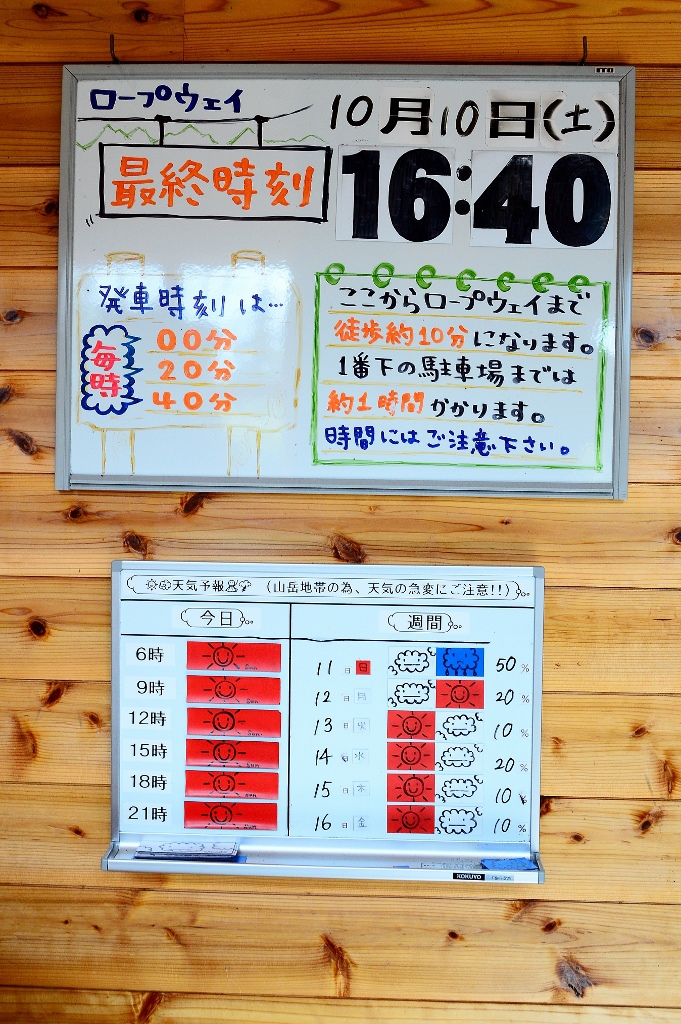 ロープウェイ
10月10日(土)
最終時刻
16:40
発車時刻は…
毎時
00分
20分
40分
ここからロープウェイまで
徒歩約10分になります。
1番下の駐車場までは
約1時間かかります。
時間にはご注意下さい。
天気予報 (山岳地帯の為、天気の急変にご注意!!)
今日
6時
9時
12時
15時
18時
21時
週間
11日 日 50%
12日 月 20%
13日 火 10%
14日 水 20%
15日 木 10%
16日 金 10%
KOKUYO